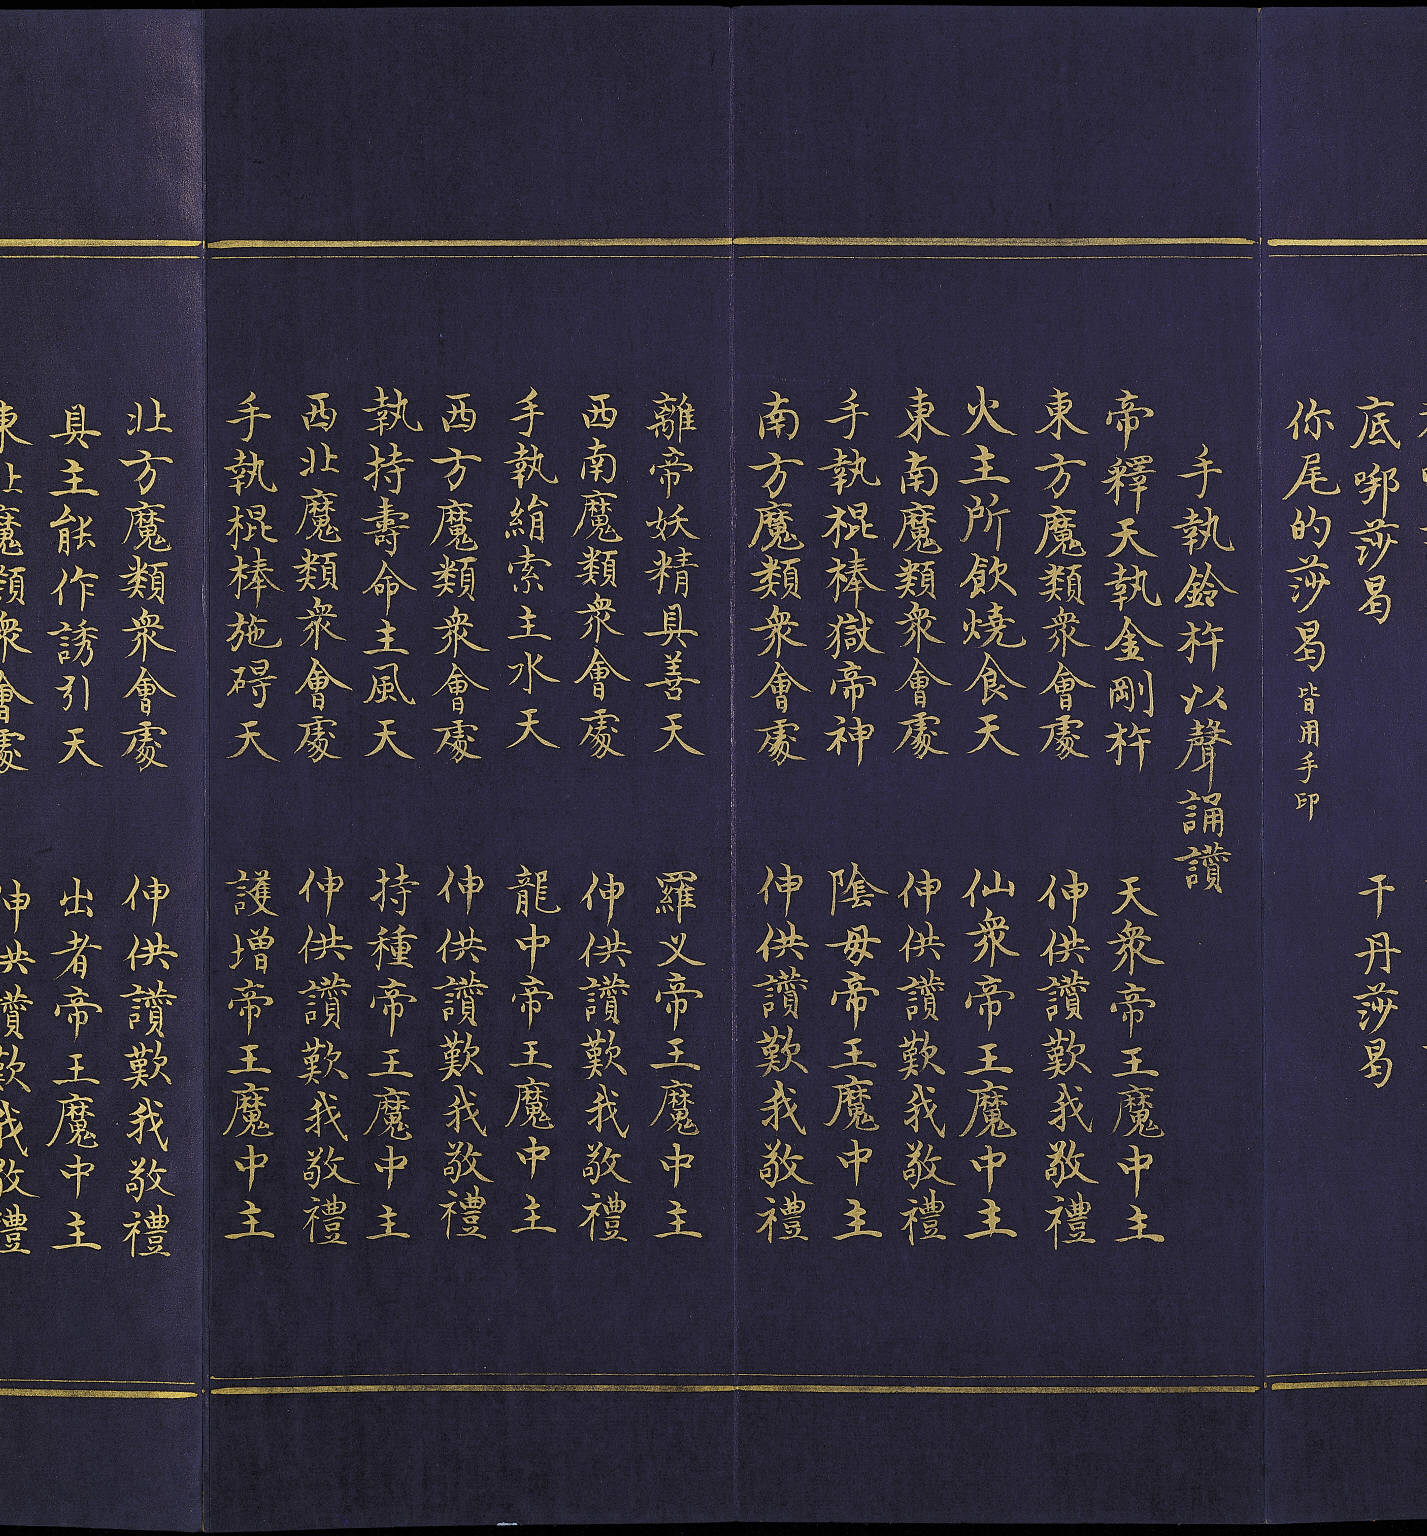 底哪莎曷 干丹莎曷
你尾的莎曷 皆用手印
手執鈴杵以聲誦讚
帝釋天執金剛杵 天衆帝王魔中主
東方魔類衆會處 伸供讚歎我敬禮
火主所飲燒食天 仙衆帝王魔中主
東南魔類衆會處 伸供讚歎我敬禮
手執棍棒獄帝神 陰母帝王魔中主
南方魔類衆會處 伸供讚歎我敬禮
離帝妖精具善天 羅义帝王魔中主
西南魔類衆會處 伸供讚歎我敬禮
手執絹索主水天 龍中帝王魔中主
西方魔類衆會處 伸供讚歎我敬禮
執持壽命主風天 持種帝王魔中主
西北魔類衆會處 伸供讚歎我敬禮
手執棍棒施碍天 護增帝王魔中主
北方魔類衆會處 伸供讚歎我敬禮
具主能作誘引天 出者帝王魔中主
東北魔類衆會處 伸供讚歎我敬禮